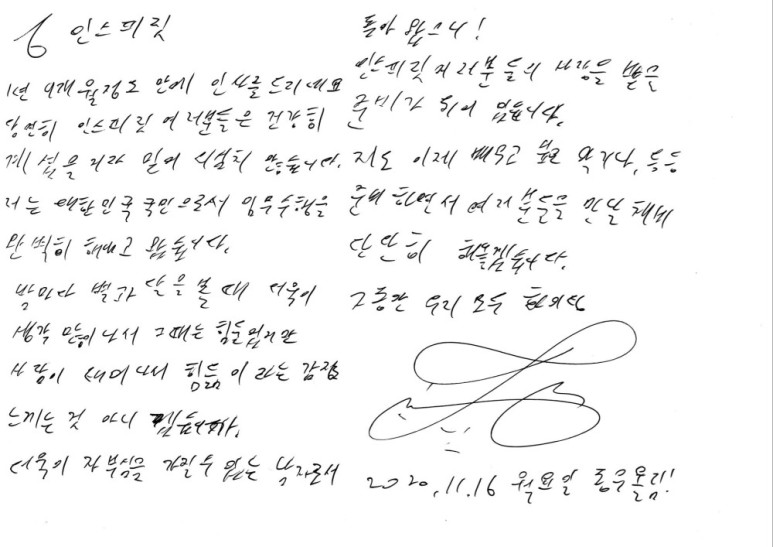 인스피릿
1년 9개월정도 만에 인사를 드리네요
당연히 인스피릿 여러분들은 건강히
계셨을 거라 믿어 의심치 않습니다.
저는 대한민국 국민으로서 임무수행을
완벽히 해내고 왔습니다.
밤마다 별과 달을 볼 때 더욱이
생각 많이 나서 그때는 힘들었지만
사랑이 새어나서 힘듦이라는 감정
느끼는 것 아니
더욱이 자부심을 가질 수 있는 남자로서
돌아왔으니!
인스피릿 여러분들의 사랑을 받을
준비가 되어 있습니다.
저도 이제 배우고 연기나, 등등
준비 하면서 여러분들을 만날 채비
단단히 해올겁니다.
그동안 우리 모두
2020.11.16 월요일 동우올림!